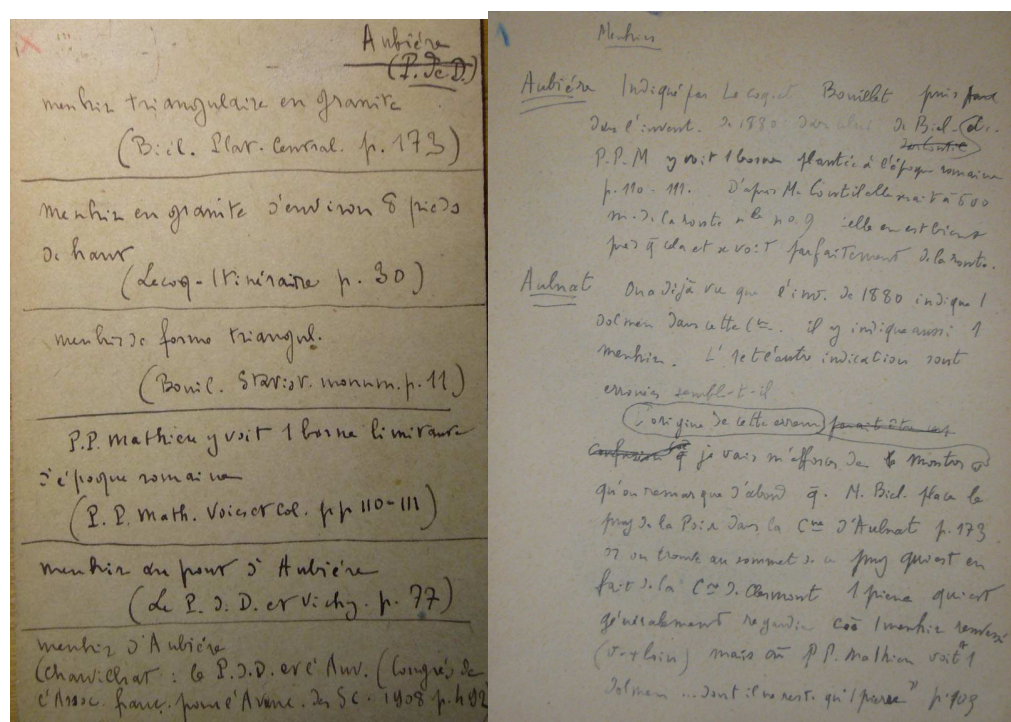 Aubiére
(P. de. D.)
menhir triangulaire en granite
(Biel. Plat. Central. p. 173)
menhir en granite d'environ 8 pieds
de haut
(Lecoq - Itinéraire p. 30)
menhir de forme triangul.
(Bouil. Statist. monum. p. 11)
P.P. Mathieu y voit 1 borne limitante
d'époque romaine
(P. P. Math. Voies et Col. pp 110-111)
menhir du pont d'Aubiére
(Le P. d. D. et Vichy. p. 77)
menhir d'Aubiére
(Charvilhat : le P.d.D. et l'Auv. (Congrés de
l'Assoc. franç. pour l'Avanc. des Sc. 1908 p. 492
Menhirs
Aubiére Indiqué par Lecoq et Bouillet puis
dans l'invent. de 1880 dans celui de Biel. etc.
P.P.M y voit 1 borne plantée à l'époque romaine
p. 110 - 111. D'après M. Courtil elle serait à 500
m. de la route nle no. 9 : elle en est bien
près q̄ cela et se voit parfaitement de la route.
Aulnat On a déjà vu que l'inv. de 1880 indique 1
dolmen dans cette Cne. il y indique aussi 1
menhir. L'1 et l'autre indication sont
erronées semble-t-il
L'origine de cette erreur parait être une
confusion q̄ je vais m'efforcer de montrer
qu'on remarque d'abord q̄. M. Biel. place le
puy de la Poix dans la Cne d'Aulnat p. 173
or on trouve au sommet de ce puy qui est en
fait de la Cne de Clermont 1 pierre qui est
généralement regardée 1 menhir renversé
(v. + loin) mais où P.P. Mathieu voit "1
dolmen ... dont il ne reste qu'1 pierre" p. 103